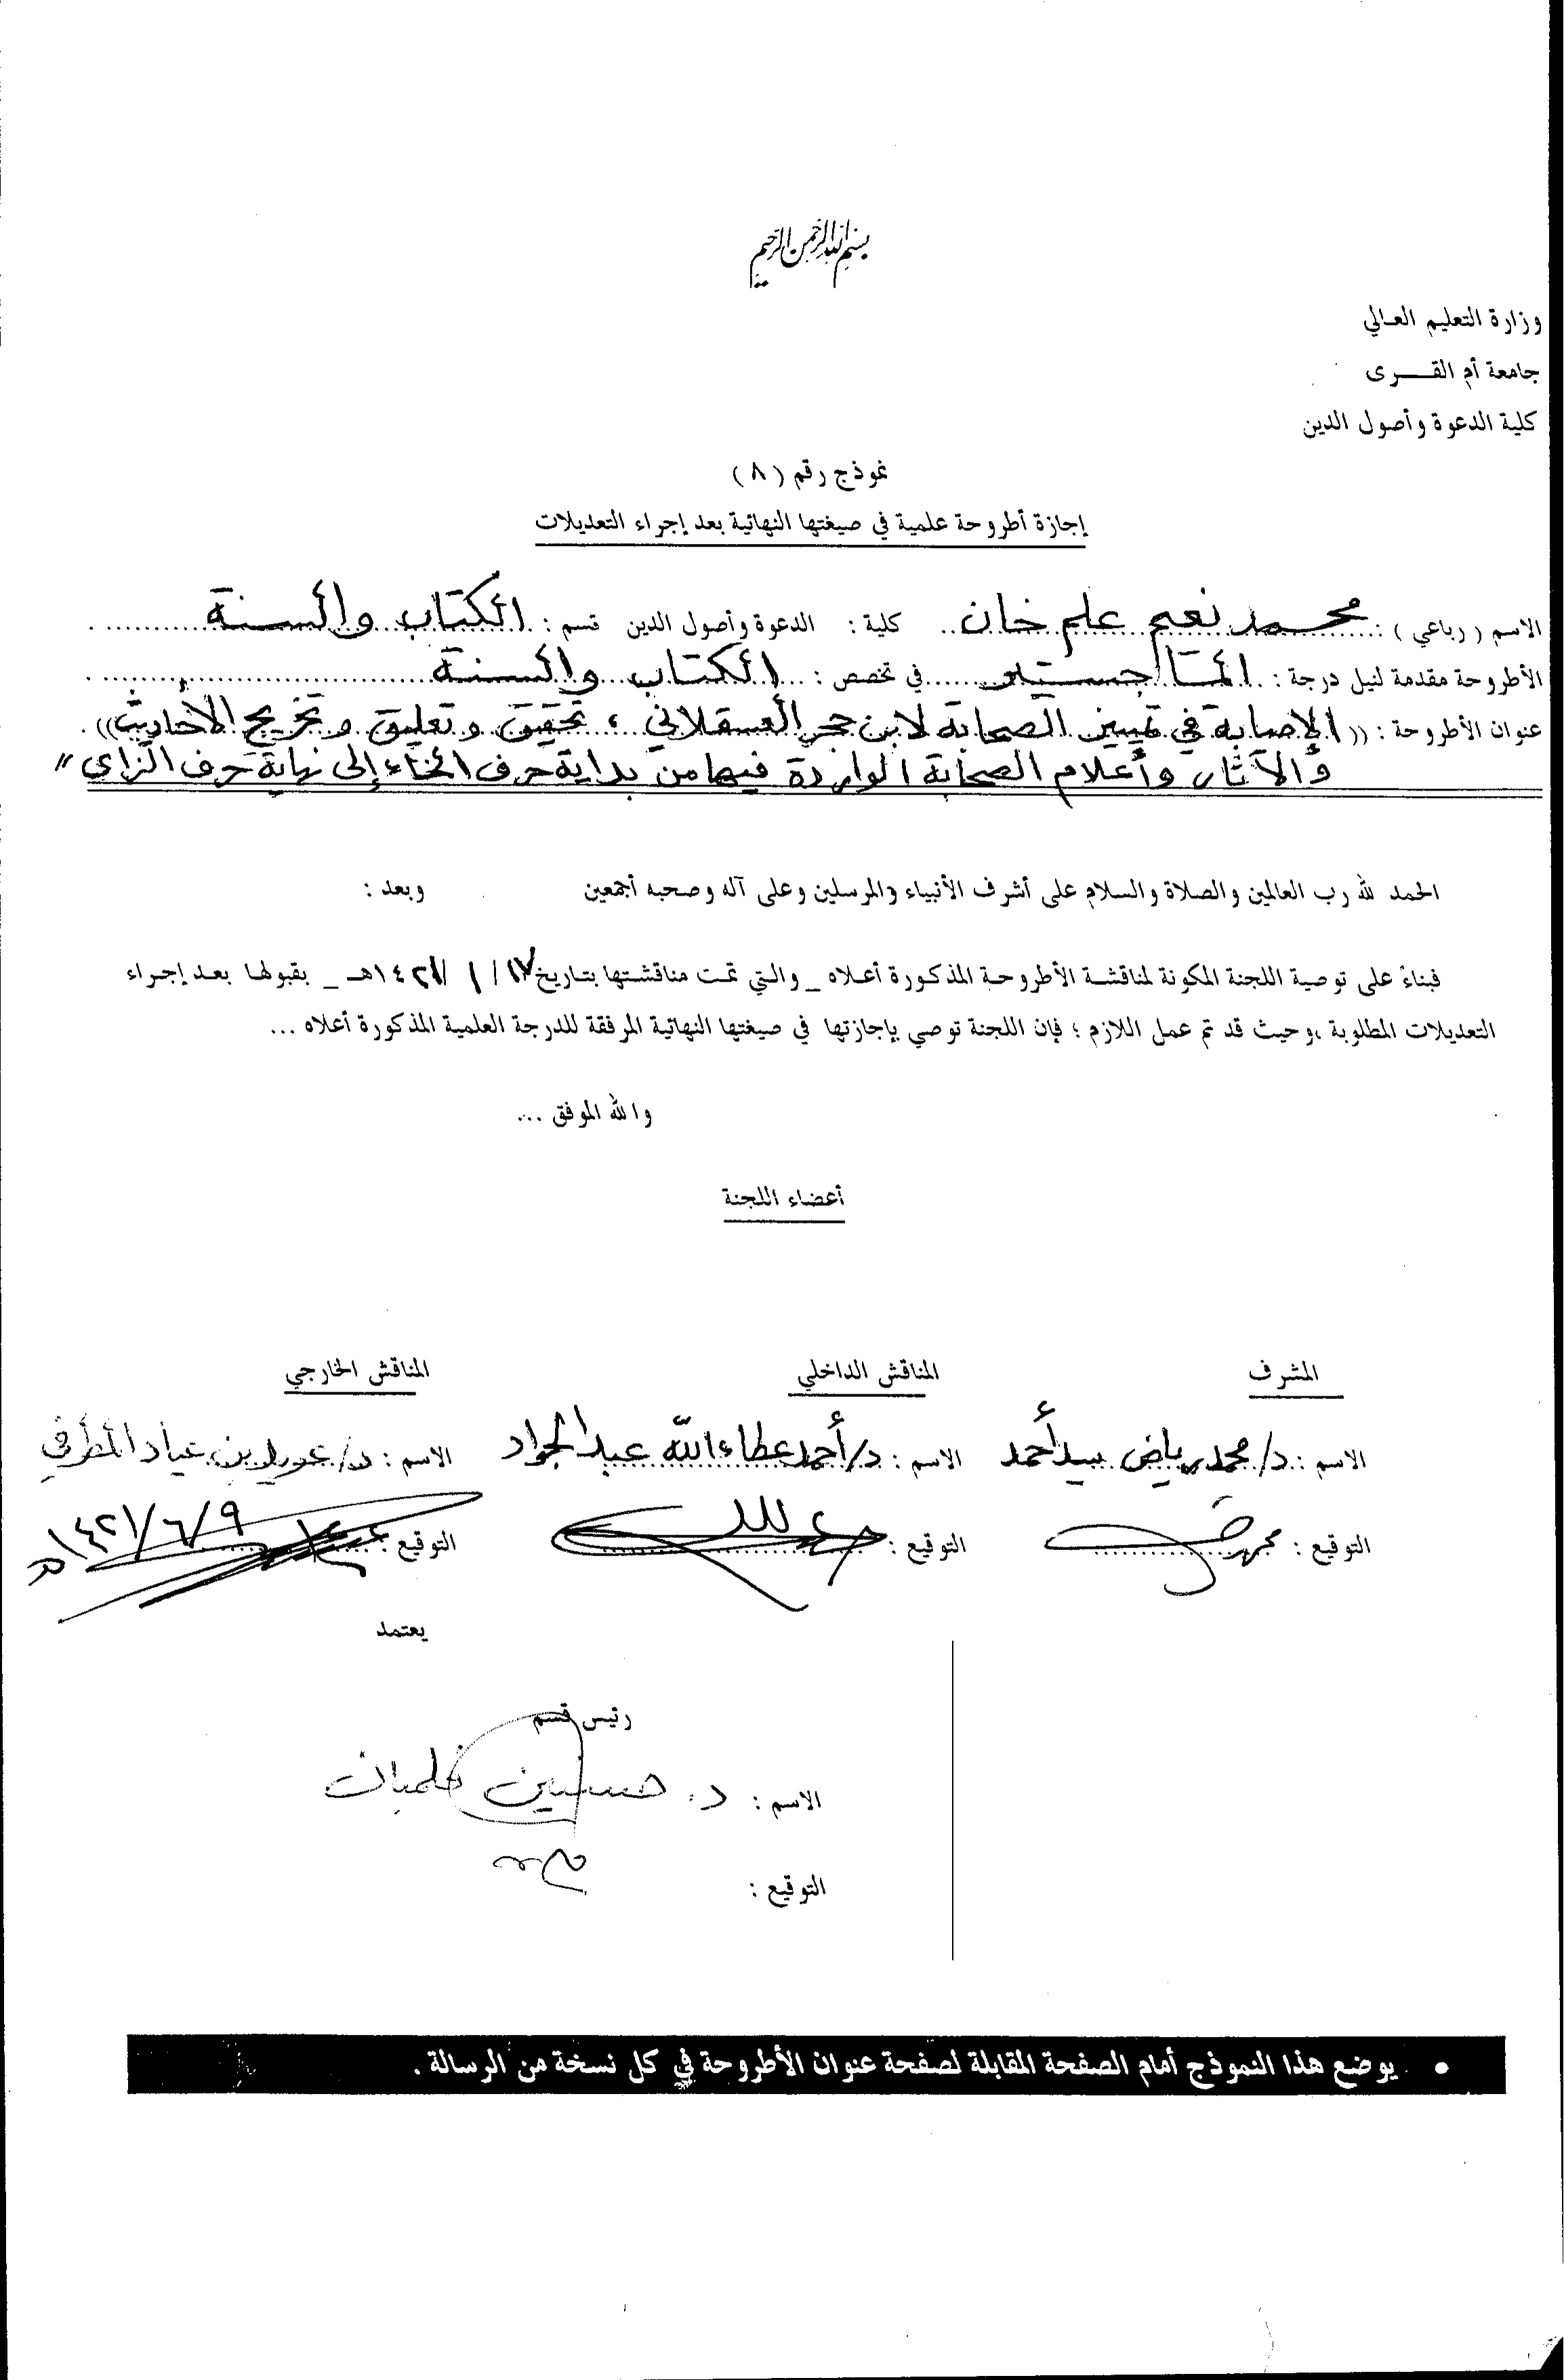 بسم الله الرحمن الرحيم
وزارة التعليم العالي
جامعة أم القــــرى
كلية الدعوة وأصول الدين
نموذج رقم ( ٨ )
إجازة أطروحة علمية في صيغتها النهائية بعد إجراء التعديلات
الاسم ( رباعي ) : محمد نعيم علم خان كلية : الدعوة وأصول الدين قسم : الكتاب والسنة
الأطروحة مقدمة لنيل درجة : الماجستير في تخصص : الكتاب والسنة
عنوان الأطروحة : (( الإصابة في تمييز الصحابة لابن حجر العسقلاني ، تحقيق وتعليق وتخريج الأحاديث ))
والآثار وأعلام الصحابة الواردة فيها من بداية حرف الخاء إلى نهاية حرف الزاي "
الحمد لله رب العالمين والصلاة والسلام على أشرف الأنبياء والمرسلين وعلى آله وصحبه أجمعين وبعد :
فبناءً على توصية اللجنة المكونة لمناقشة الأطروحة المذكورة أعلاه _ والتي تمت مناقشتها بتاريخ ١٧ / ١ / ١٤٢١هـ _ بقبولها بعد إجراء
التعديلات المطلوبة ،وحيث قد تم عمل اللازم ؛ فإن اللجنة توصي بإجازتها في صيغتها النهائية المرفقة للدرجة العلمية المذكورة أعلاه ...
والله الموفق ...
أعضاء اللجنة
المشرف المناقش الداخلي المناقش الخارجي
الاسم : د/ محمد رياض سيد أحمد الاسم : د/ أحمد عطاء الله عبد الجواد الاسم : د/ عويد بن عياد المطرفي
التوقيع : التوقيع : التوقيع : ١٤٢١/٦/٩ هـ
يعتمد
رئيس قسم
الاسم : د. حسين فلمبان
التوقيع :
• يوضع هذا النموذج أمام الصفحة المقابلة لصفحة عنوان الأطروحة في كل نسخة من الرسالة .